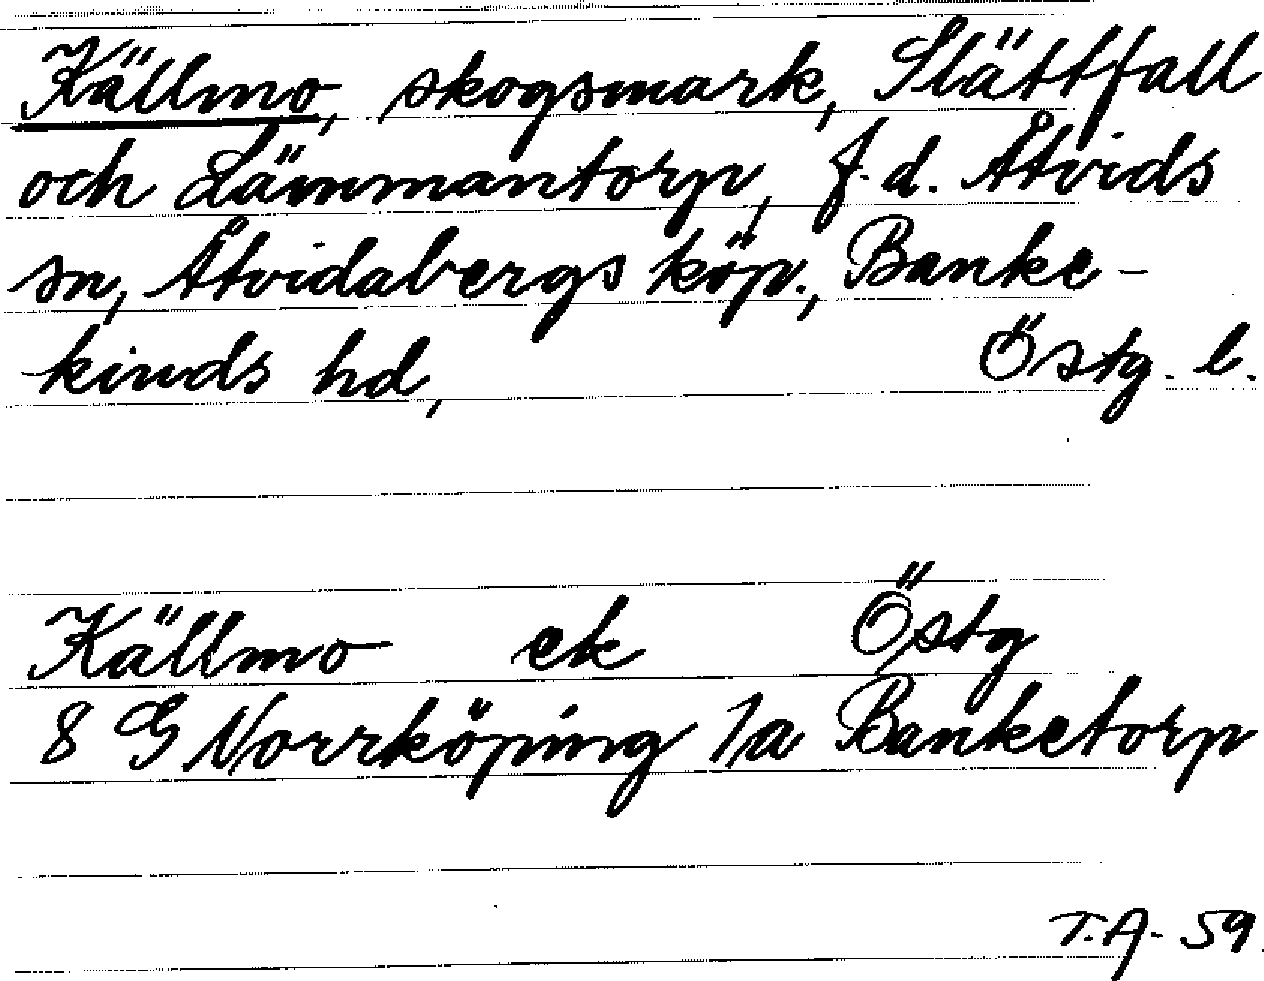 Källmo, skogsmark, Slättfall
och Lämmantorp, f.d. Åtvids
sn, Åtvidabergs köp., Banke-
kinds hd, Östg. l.
Källmo ek Östg
8 G Norrköping 1a Banketorp
T.A. 59